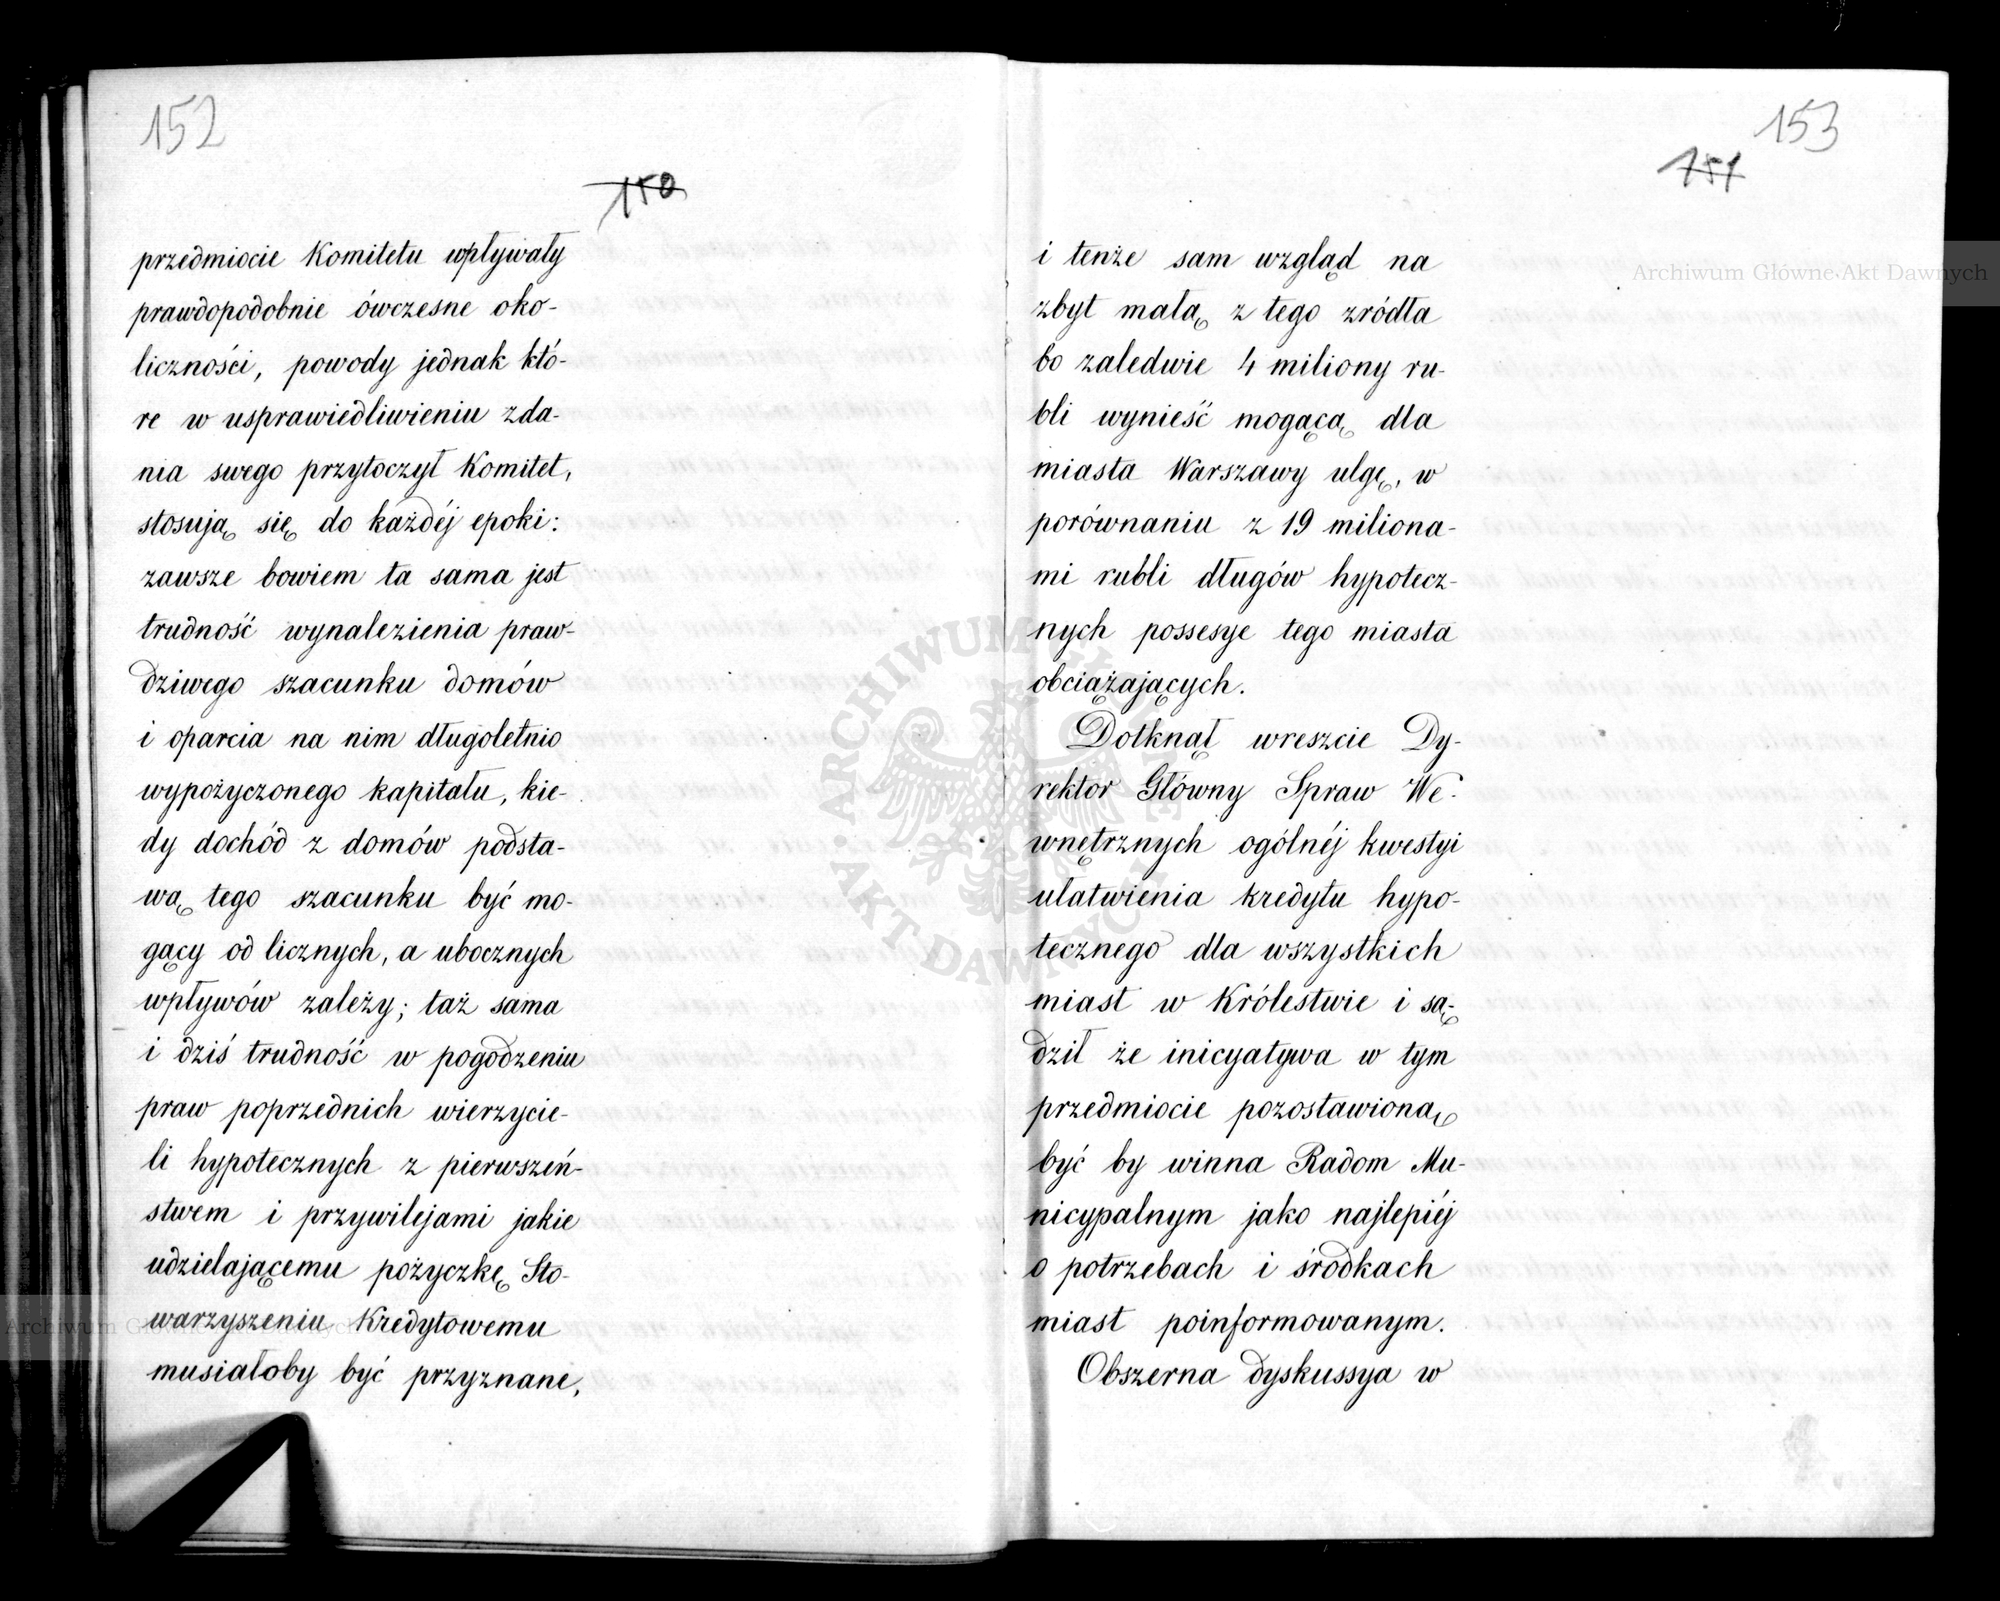 152
150
przedmiocie Komitetu wpływały
prawdopodobnie ówczesne oko-
liczności, powody jednak któ-
re w usprawiedliwieniu zda-
nia swego przytoczył Komitet,
stosują się do każdéj epoki:
zawsze bowiem ta sama jest
trudność wynalezienia praw-
dziwego szacunku domów
i oparcia na nim długoletnio
wypożyczonego kapitału, kie-
dy dochód z domów podsta-
wą tego szacunku być mo-
gący od licznych, a ubocznych
wpływów zależy; taż sama
i dziś trudność w pogodzeniu
praw poprzednich wierzycie-
li hypotecznych z pierwszeń-
stwem i przywilejami jakie
udzielającemu pożyczkę Sto-
warzyszeniu Kredytowemu
musiałoby być przyznane,
153
151
i tenże sam wzgląd na
zbyt małą z tego zródła
bo zaledwie 4 miliony ru-
bli wynieść mogącą dla
miasta Warszawy ulgę, w
porównaniu z 19 miliona-
mi rubli długów hypotecz-
nych possesye tego miasta
obciążających.
Dotknął wreszcie Dy-
rektor Główny Spraw We-
wnętrznych ogólnéj kwestyi
ułatwienia kredytu hypo-
tecznego dla wszystkich
miast w Królestwie i są-
dził że inicyatywa w tym
przedmiocie pozostawioną
być by winna Radom Mu-
nicypalnym jako najlepiéj
o potrzebach i środkach
miast poinformowanym.
Obszerna dyskussya w
Archiwum Główne Akt Dawnych
Archiwum Główne Akt Dawnych
ARCHIWUM GŁÓWNE AKT DAWNYCH